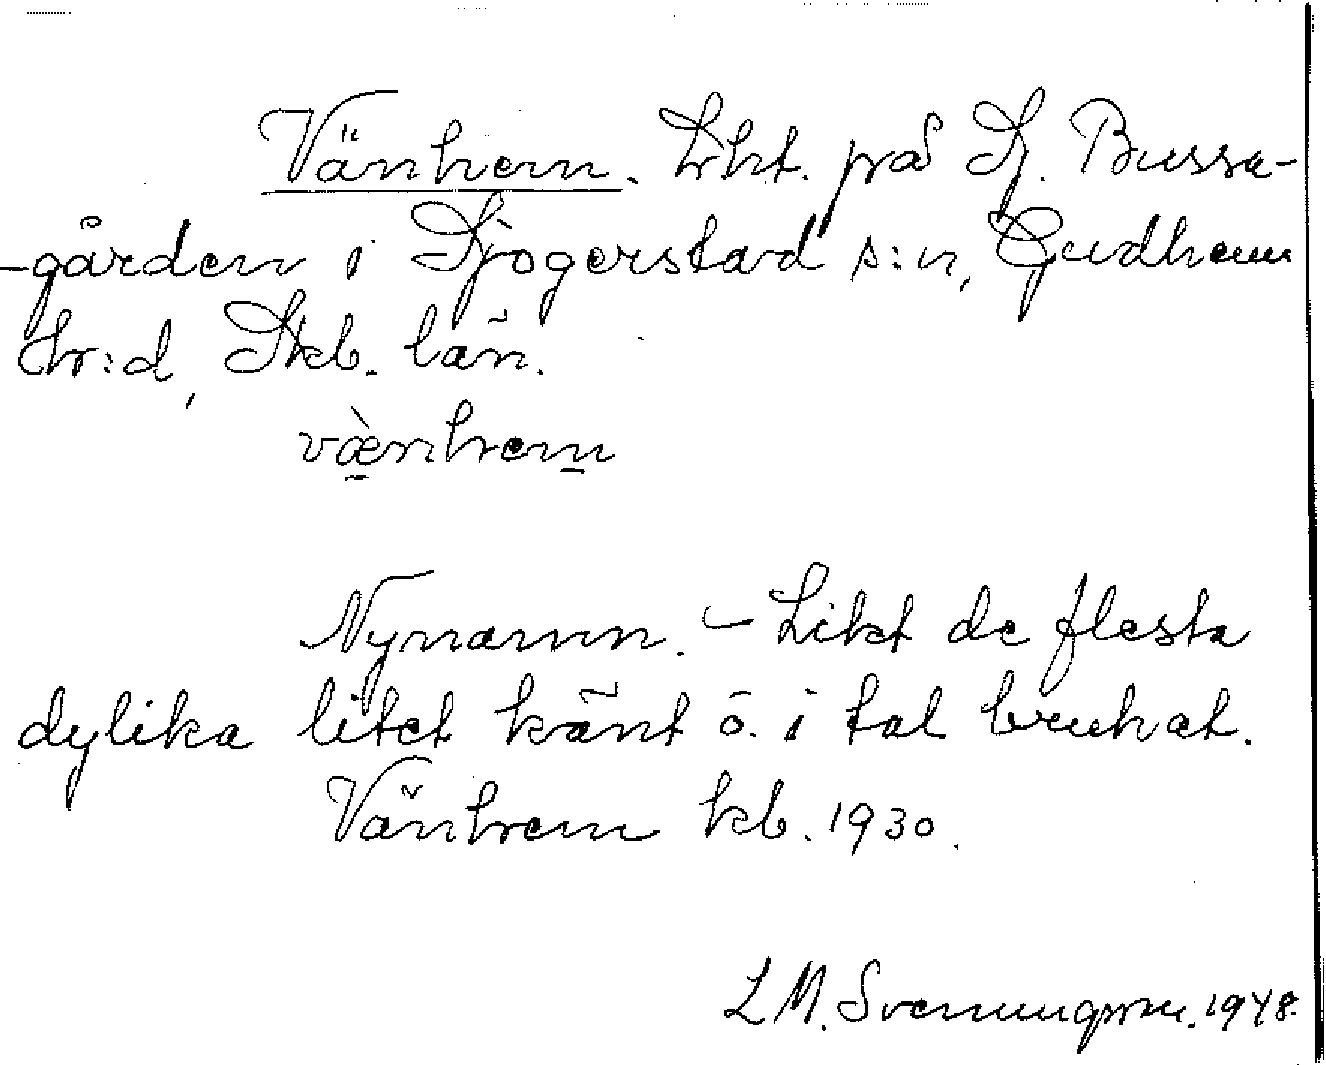 Vänhem. Lht. på St. Bussa-
-gården i Sjogerstad s:n, Gudhem
hr:d, Skb. län.
væ̀nhem
Nynamn. - Likt de flesta
dylika litet känt o. i tal brukat.
Vänhem kb. 1930.
L M. Svenungsson. 1948.